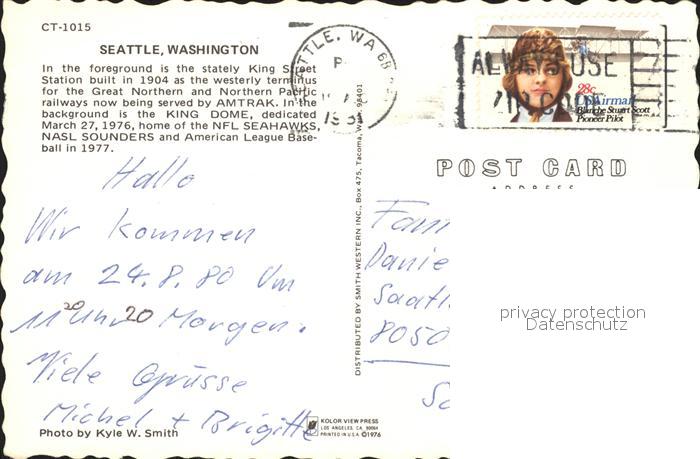 CT-1015
SEATTLE, WASHINGTON
In the foreground is the stately King Street
Station built in 1904 as the westerly terminus
for the Great Northern and Northern Pacific
railways now being served by AMTRAK. In the
background is the KING DOME, dedicated
March 27, 1976, home of the NFL SEAHAWKS,
NASL SOUNDERS and American League Base-
ball in 1977.
Hallo
Wir kommen
am 24.8.80 Um
11 20 Uhr 20 Morgen.
Viele Grüsse
Michel + Brigitte
Photo by Kyle W. Smith
DISTRIBUTED BY SMITH WESTERN INC., Box 475, Tacoma, WA 98401
KOLOR VIEW PRESS
LOS ANGELES, CA. 90064
PRINTED IN U.S.A. ©1976
SEATTLE, WA
ALWAYS USE
ZIP CODE
28c
USAirmail
Blanche Stuart Scott
Pioneer Pilot
POST CARD
ADDRESS
Fam
Danie
Saatl
8050
privacy protection
Datenschutz